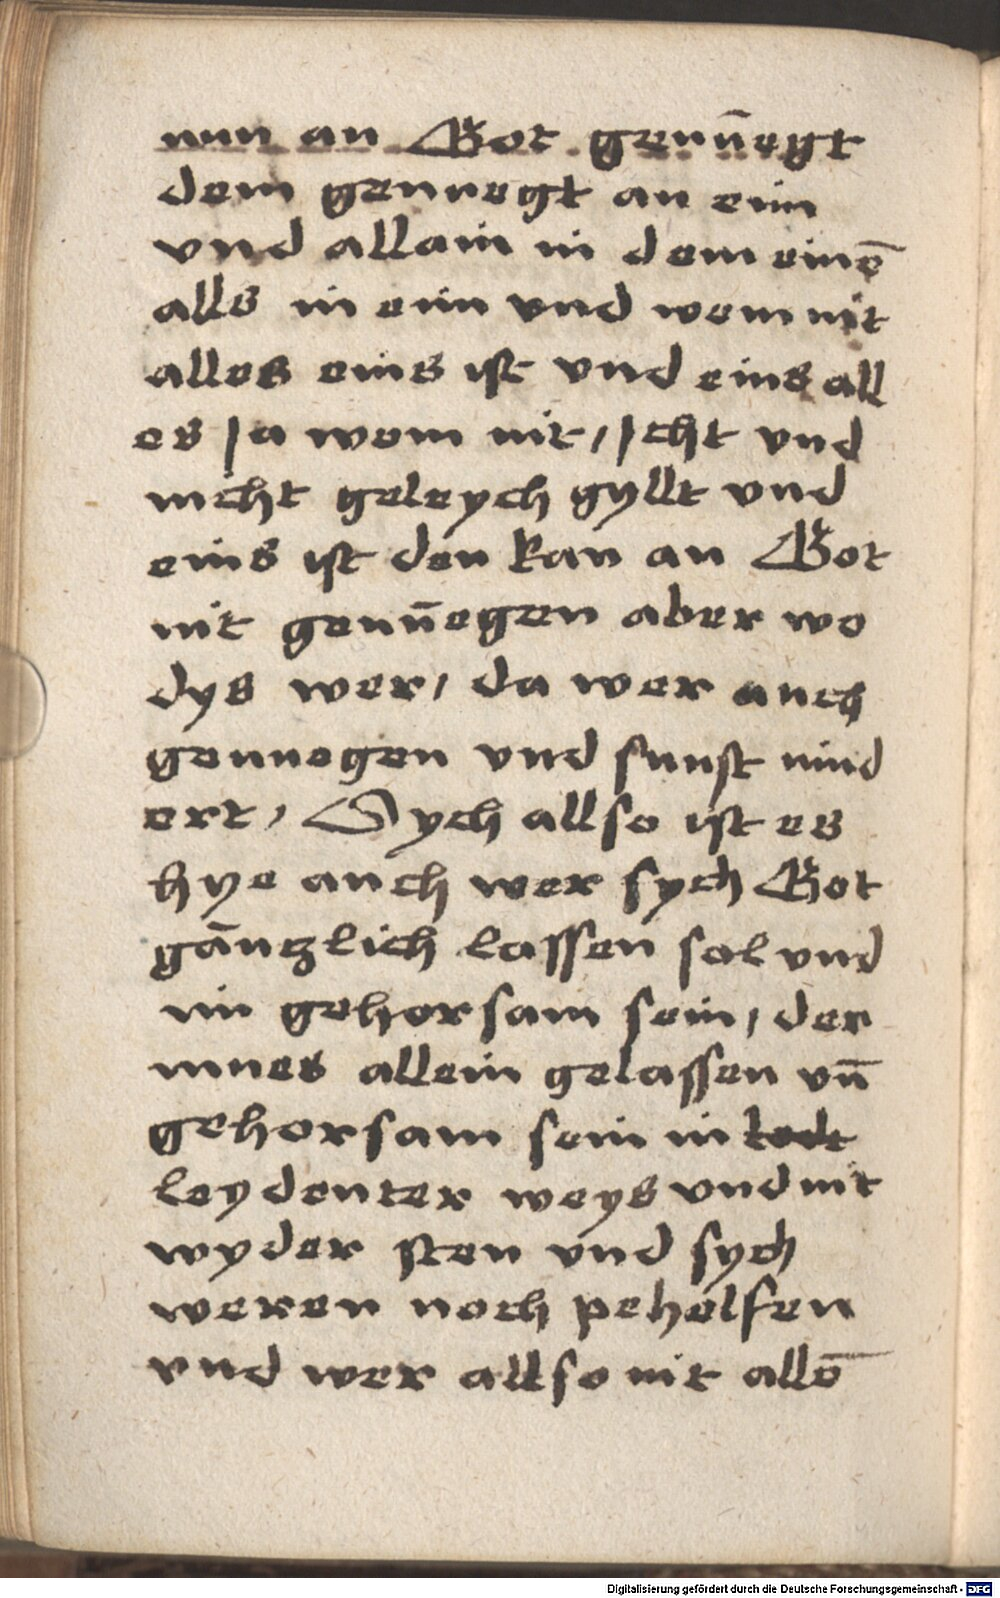 nun an Got genu̅egt
dem genuegt an ein
vnd allain in dem eine̅
alls in ein vnd wem nit
alles eins ist vnd eins all
es Ja wem nit / Jcht vnd
nicht geleych gyllt vnd
eins ist den kan an Got
nit genu̅egen aber wo
dys wer / da wer auch
genuegen vnd sunst nind
ert / Sych allso ist es
hye auch wer sych Got
ga̅nczlich lassen sol vnd
im gehorsam sein / der
mues allein gelassen vn̅
gehorsam sein in
leydenter weys vnd nit
wyder sten vnd sych
weren noch pehelfen
vnd wer allso nit alle̅
Digitalisierung gefördert durch die Deutsche Forschungsgemeinschaft - DFG